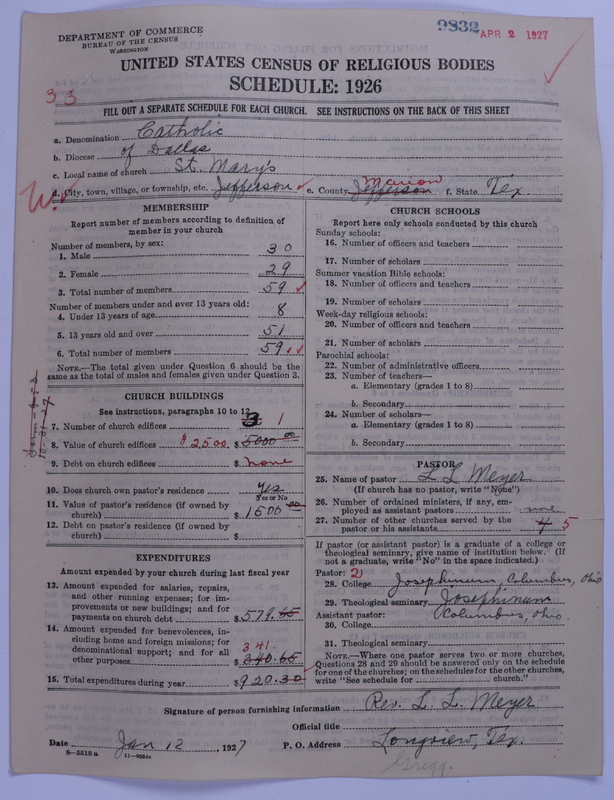 DEPARTMENT OF COMMERCE
BUREAU OF THE CENSUS
WASHINGTON
9832 APR 2 1927
UNITED STATES CENSUS OF RELIGIOUS BODIES
SCHEDULE: 1926
33
FILL OUT A SEPARATE SCHEDULE FOR EACH CHURCH. SEE INSTRUCTIONS ON THE BACK OF THIS SHEET
a. Denomination Catholic
b. Diocese of Dallas
c. Local name of church St. Mary's
d. City, town, village, or township, etc. Jefferson e. County Jefferson Marion f. State Tex
MEMBERSHIP
Report number of members according to definition of
member in your church
Number of members, by sex:
1. Male 30
2. Female 29
3. Total number of members 59
Number of members under and over 13 years old:
4. Under 13 years of age 8
5. 13 years old and over 51
6. Total number of members 59
NOTE.—The total given under Question 6 should be
same as the total of males and females given under Question 3.
CHURCH BUILDINGS
See instructions, paragraphs 10 to 12
7. Number of church edifices 3 1
8. Value of church edifices $2500. $5000 00
9. Debt on church edifices $ none
10. Does church own pastor's residence Yes
Yes or No
11. Value of pastor's residence (if owned by
church) $1500 00
12. Debt on pastor's residence (if owned by
church) $
EXPENDITURES
Amount expended by your church during last fiscal year
13. Amount expended for salaries, repairs,
and other running expenses; for im-
provements or new buildings; and for
payments on church debt $579.65
14. Amount expended for benevolences, in-
cluding home and foreign missions; for
denominational support; and for all
other purposes $340.65 341
15. Total expenditures during year $920.30
CHURCH SCHOOLS
Report here only schools conducted by this church
Sunday schools:
16. Number of officers and teachers
17. Number of scholars
Summer vacation Bible schools:
18. Number of officers and teachers
19. Number of scholars
Week-day religious schools:
20. Number of officers and teachers
21. Number of scholars
Parochial schools:
22. Number of administrative officers
23. Number of teachers—
a. Elementary (grades 1 to 8)
b. Secondary
24. Number of scholars—
a. Elementary (grades 1 to 8)
b. Secondary
PASTOR
25. Name of pastor L L Meyer
(If church has no pastor, write "None")
26. Number of ordained ministers, if any, em-
ployed as assistant pastors
27. Number of other churches served by the
pastor or his assistants 4 5
If pastor (or assistant pastor) is a graduate of a college or
theological seminary, give name of institution below. (If
not a graduate, write "No" in the space indicated.)
Pastor: 2
28. College Josephinum, Columbus, Ohio
29. Theological seminary Josephinum
Assistant pastor: Columbus, Ohio.
30. College
31. Theological seminary
NOTE.—Where one pastor serves two or more churches,
Questions 28 and 29 should be answered only on the schedule
for one of the churches; on the schedules for the other churches,
write "See schedule for church."
Signature of person furnishing information Rev. L. L. Meyer
Official title
Date Jan 12, 1927 P. O. Address Longview, Tex.
8—5518a
Gregg.